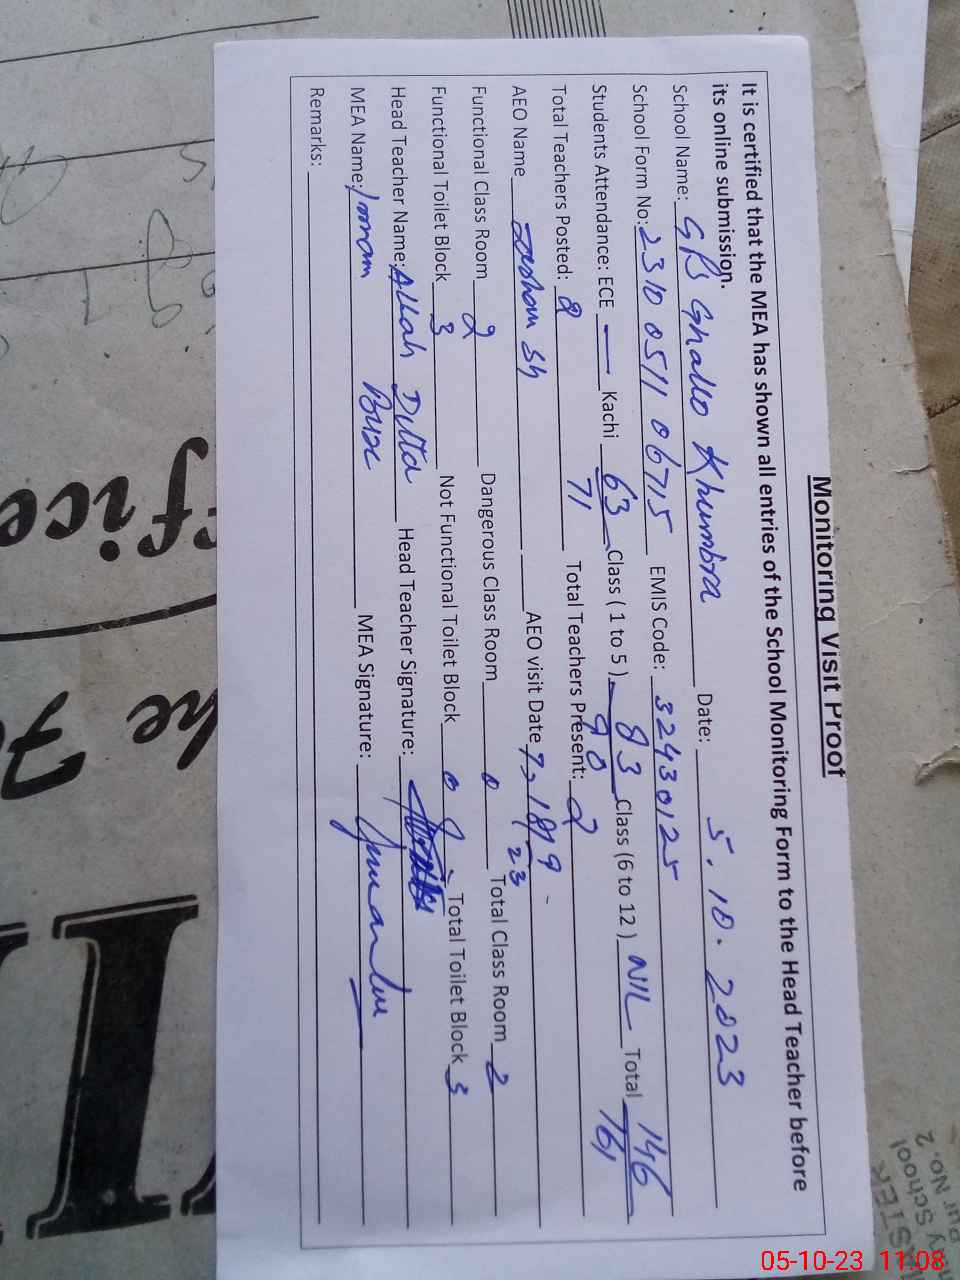 Monitoring Visit Proof
It is certified that the MEA has shown all entries of the School Monitoring Form to the Head Teacher before
its online submission.
School Name: GB Ghallo Khumbra Date: 5.10.2023
School Form No: 2310 0511 06715 EMIS Code: 32430125
Students Attendance: ECE — Kachi 63 Class ( 1 to 5 ) 83 Class (6 to 12 ) NIL Total 146
71 90 161
Total Teachers Posted: 2 Total Teachers Present: 2
AEO Name AEO visit Date
23
Functional Class Room 2 Dangerous Class Room 0 Total Class Room 2
Functional Toilet Block 3 Not Functional Toilet Block 0 Total Toilet Block 3
Head Teacher Name: Allah Ditta Head Teacher Signature:
MEA Name: Imam Bux MEA Signature:
Remarks:
fice
he
05-10-23 11:08